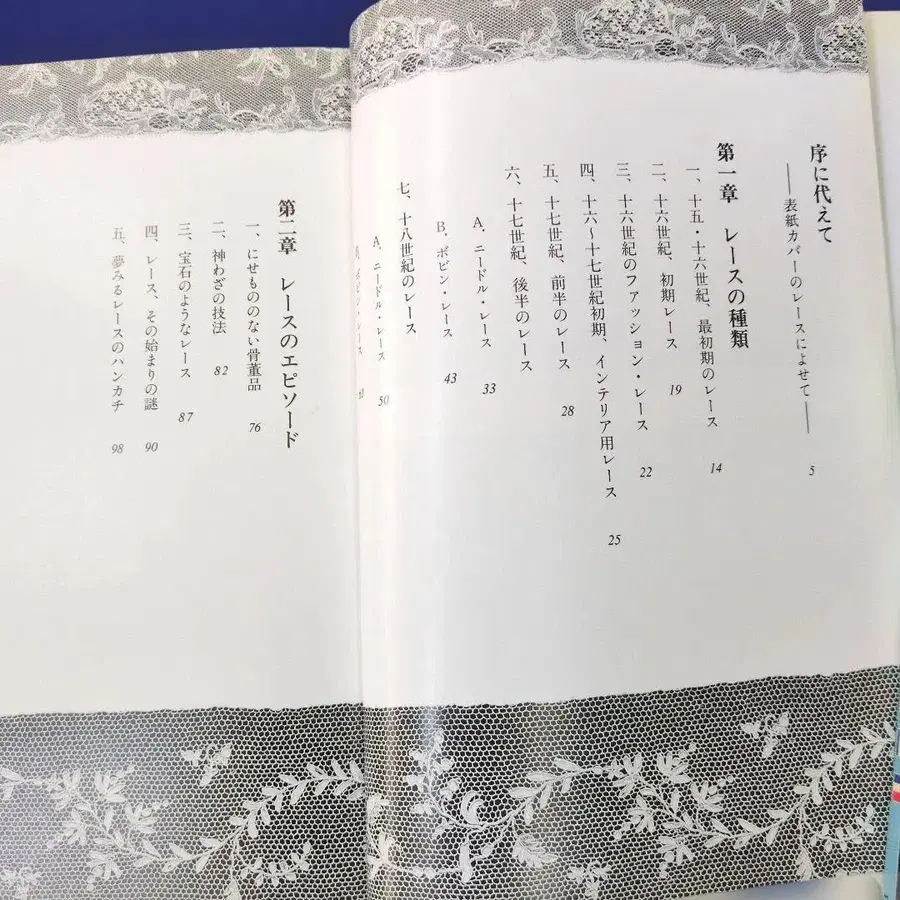 序に代えて
──表紙カバーのレースによせて── 5
第一章 レースの種類
一、十五・十六世紀、最初期のレース 14
二、十六世紀、初期レース 19
三、十六世紀のファッション・レース 22
四、十六〜十七世紀初期、インテリア用レース 25
五、十七世紀、前半のレース 28
六、十七世紀、後半のレース
A、ニードル・レース 33
B、ボビン・レース 43
七、十八世紀のレース
A、ニードル・レース 50
ボビン・レース
第二章 レースのエピソード
一、にせもののない骨董品 76
二、神わざの技法 82
三、宝石のようなレース 87
四、レース、その始まりの謎 90
五、夢みるレースのハンカチ 98